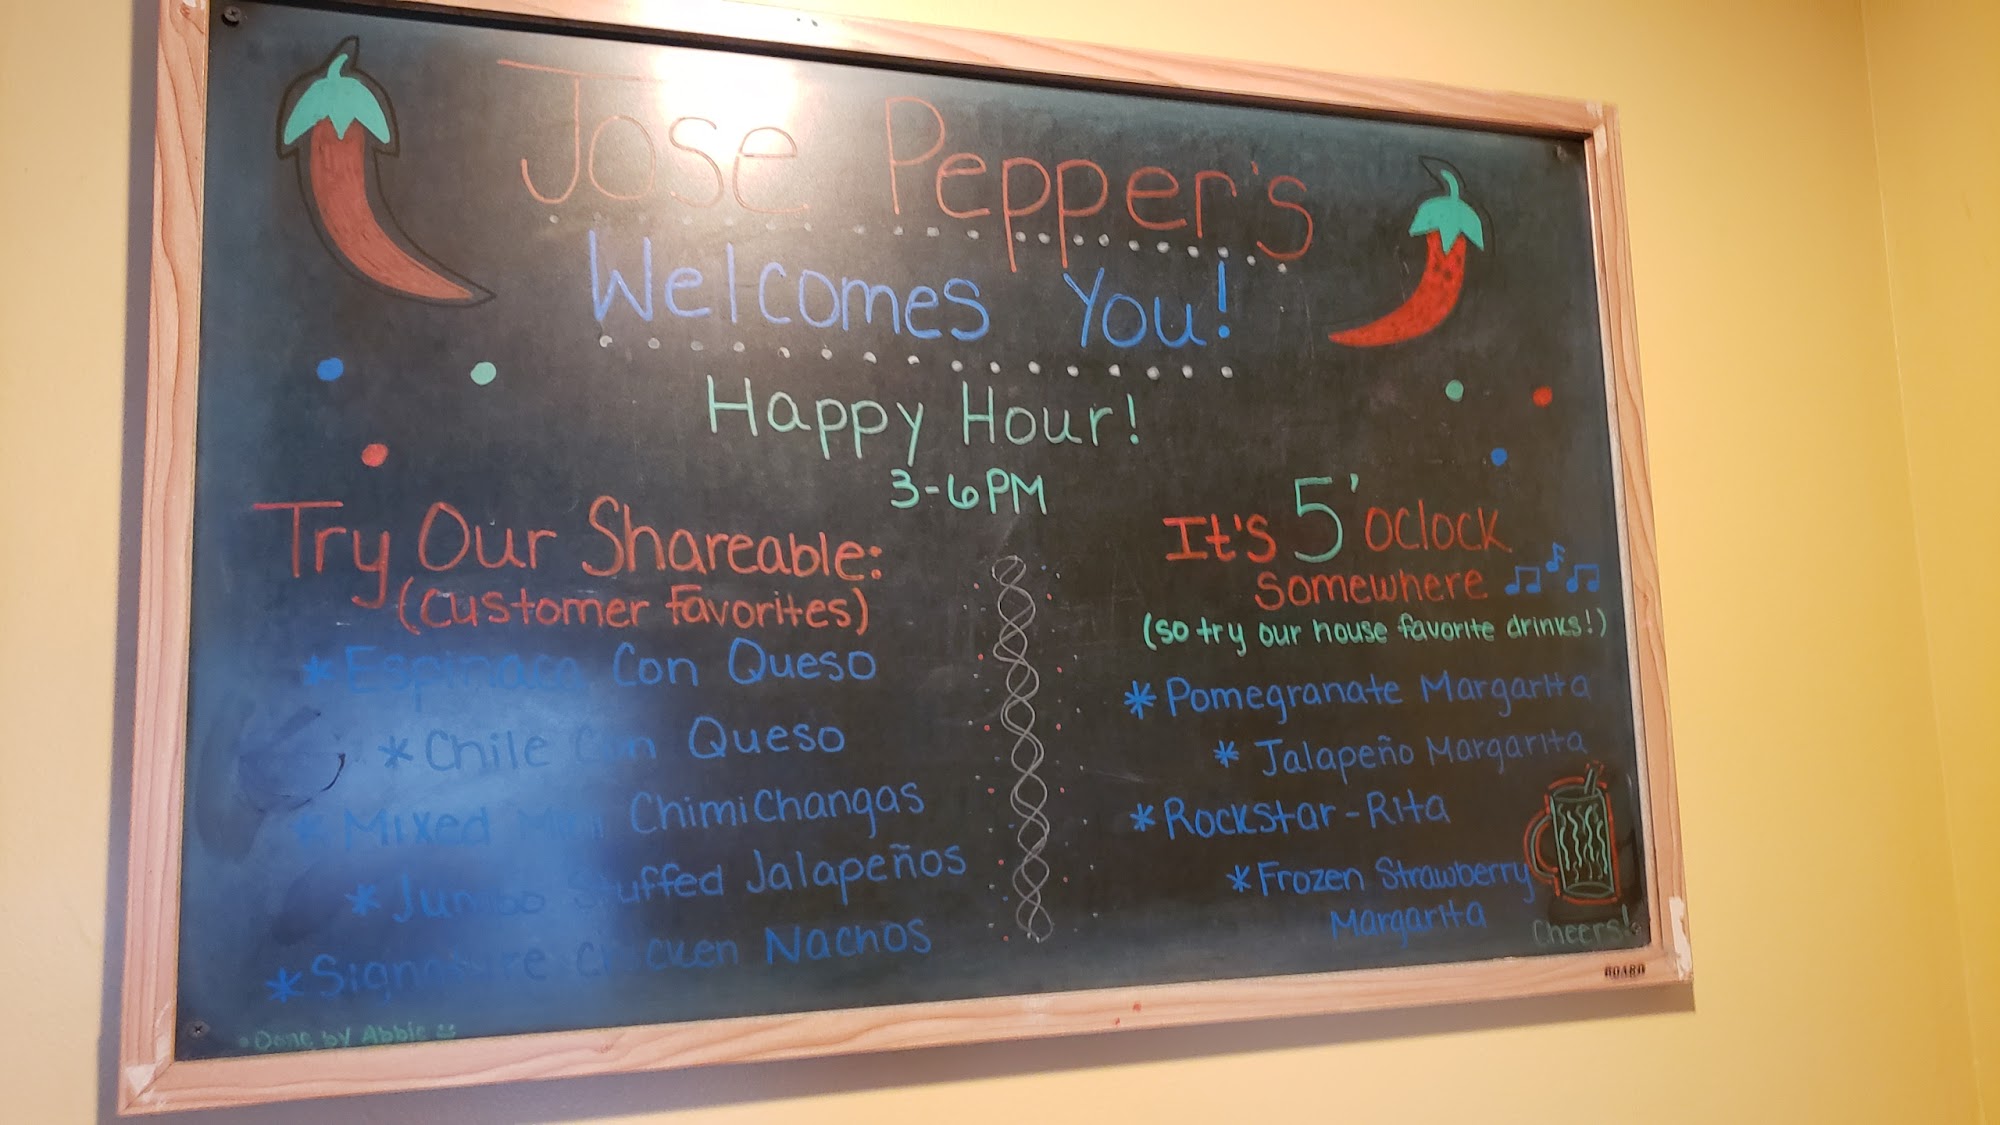 Jose Pepper's
Welcomes You!
Happy Hour!
3-6PM
Try Our Shareable:
(Customer Favorites)
* Espinaca Con Queso
* Chile Con Queso
* Mixed Mini ChimiChangas
* Jumbo Stuffed Jalapeños
* Signature Chicken Nachos
Done by Abbie
It's 5' oclock
Somewhere
(so try our house favorite drinks!)
* Pomegranate Margarita
* Jalapeño Margarita
* Rockstar-Rita
* Frozen Strawberry
Margarita
Cheers!
BOARD